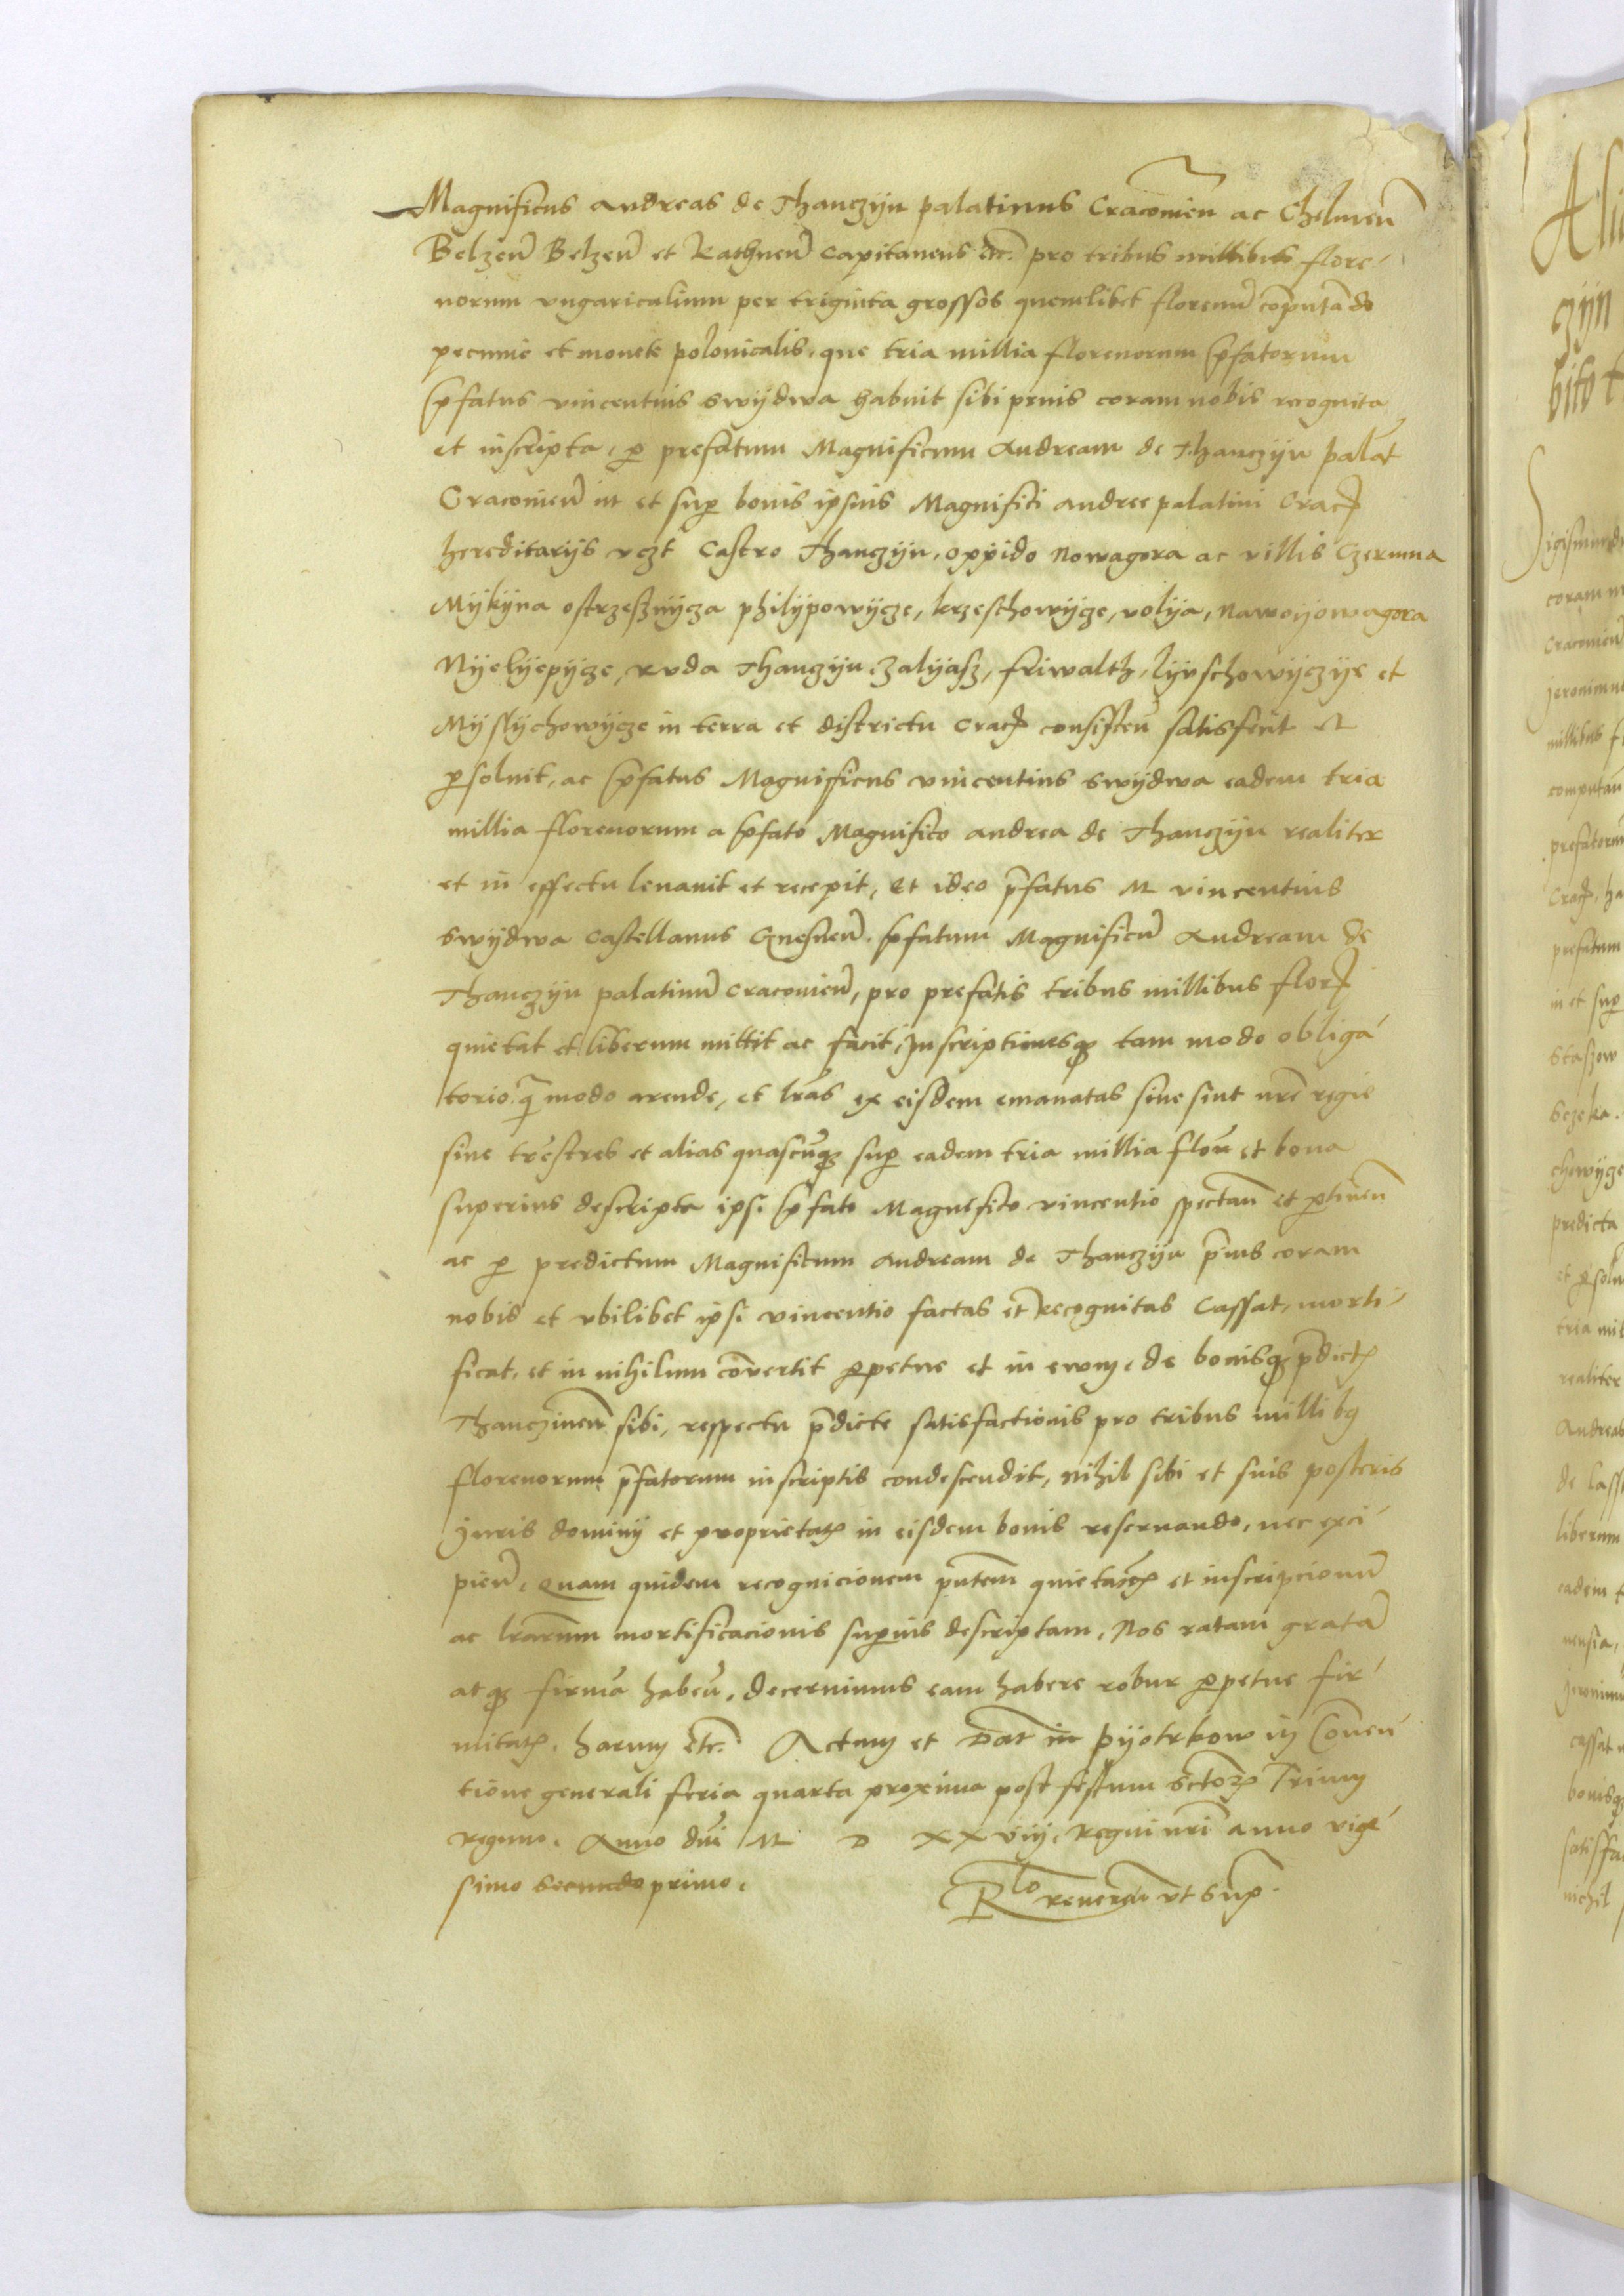 Magnificus Andreas de Thanczyn palatinus Cracovien̄ ac Chelmen̄
Belzen̄ Belzen̄ et Rathnen̄ Capitaneus etc. pro tribus millibus flore-
norum ungaricalium per triginta grossos quemlibet florenū cōputādo
pecunie et monete polonicalis, que tria millia florenorum p̄fatorum
p̄fatus vincentius Swydwa habuit sibi prius coram nobis recognita
et inscripta, ꝑ prefatum Magnificum Andream de Thanczyn palat̄
Cracovien̄ in et suꝑ bonis ipsius Magnifici Andree palatini Crac̄
hereditarijs vczt Castro Thanczyn, oppido Nowagora ac villis Czermna
Mykyna ostrzesznycza philypowycze, krzeschowycze, volya, Nawoyowagora
Nyelyepycze, ruda Thanczyn, Zalyasz, friwalth, lyvschowyczye et
Myslychowycze in terra et districtu Crac̄ consisten̄ satisfecit et
ꝑsolvit, ac p̄fatus Magnificus vincentius Swydwa eadem tria
millia florenorum a p̄fato Magnifico Andrea de Thanczyn realiter
et in effectu levavit et recepit, Et ideo p̄fatus M vincentius
Swydwa Castellanus Gnesnen̄. p̄fatum Magnificū Andream de
Thanczyn palatinū Cracovien̄, pro prefatis tribus millibus flor̄
quietat et liberum mittit ac facit, Inscriptionesqꝫ tam modo obliga-
torio q̄ modo arende, et lr̄as ex eisdem emanatas sive sint nr̄e regie
sive tr̄estres et alias quascūqꝫ suꝑ eadem tria millia flor̄ et bona
superius descripta ipsi p̄fato Magnifico vincentio spectan̄ et ꝑtinen̄
ac ꝑ predictum Magnificum Andream de Thanczyn p̄ius coram
nobis et ubilibet ipsi vincentio factas et recognitas Cassat, morti-
ficat, et in nihilum cōvertit ꝑpetue et in evum, de bonisqꝫ p̄dictꝭ
Thanczinen̄ sibi, respectu p̄dicte satisfactionis pro tribus millibꝫ
florenorum p̄fatorum inscriptis condescendit, Nihil sibi et suis posteris
Juris dominij et proprietatꝭ in eisdem bonis reservando, nec exci-
pien̄, Quam quidem recognicionem pn̄tem quietac̄oꝭ et inscripcionū
ac lr̄arum mortificacionis suꝑius descriptam, Nos ratam gratā
atqꝫ firmā haben̄, decernimus eam habere robur ꝑpetue fir-
mitatꝭ. harum etc. Actum et Dat in Pyotrkow in Conven-
tione generali feria quarta proxima post festum Sctoꝝ Trium
Regum. Anno dn̄i M D XXviij, Regni nr̄i anno vige-
simo secundo primo.
Rlo reveren̄ ut Supꝛ.